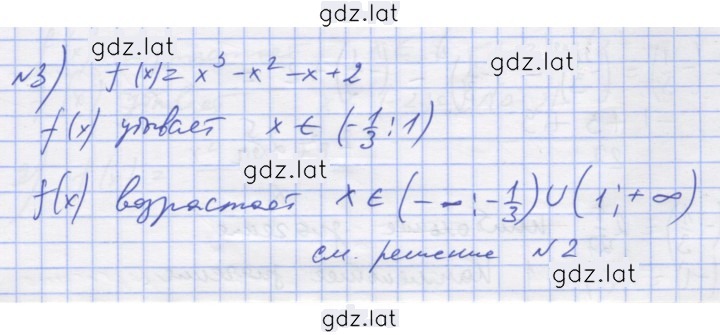 gdz.lat
gdz.lat
№3) f(x)= x³-x²-x+2
gdz.lat
f(x) убывает x ∈ (-1/3; 1)
gdz.lat
f(x) возрастает x ∈ (-∞; -1/3) ∪ (1; +∞)
см. решение №2
gdz.lat
gdz.lat